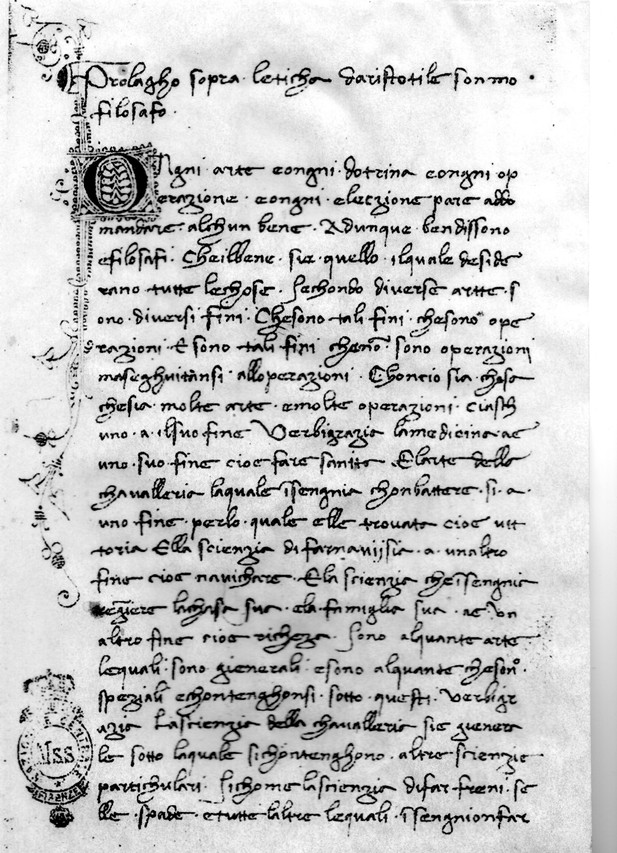 Prolagho sopra leticha daristotile sommo
filosafo
Ogni arte eongni dotrina eongni op
erazione eongni elezzione pare addo
mandare alchun bene Adunque bendissono
efilosafi Cheilbene sie quello ilquale deside
rano tutte lechose Sechondo diverse artte s
ono diversi fini Chesono tali fini chesono ope
razioni E sono tali fini cheno sono operazioni
maseghuitansi alloperazioni Choncio sia chosa
chesia molte arte emolte operazioni ciasch
uno a ilsuo fine Verbigrazia lamedicina ae
uno suo fine cioe fare sanita Elarte della
chavalleria laquale isengnia chonbattere si a
uno fine perlo quale elle trovata cioe vit
toria Ella scienzia di farnavijsia a unaltro
fine cioe navichare Ela scienzia cheisengnia
regiere lachasa sua ela famiglia sua ae un
altro fine cioe richeza Sono alquante arte
lequali sono gienerali esono alquante cheson
speziali echontenghonsi sotto questi Verbigr
azia Lascienzia della chavalleria sie genera
le sotto laquale sichontenghono altre scienzie
partichulari Sichome lascienzia difar freni se
lle spade etutte laltre lequali isengnionfar
Mss